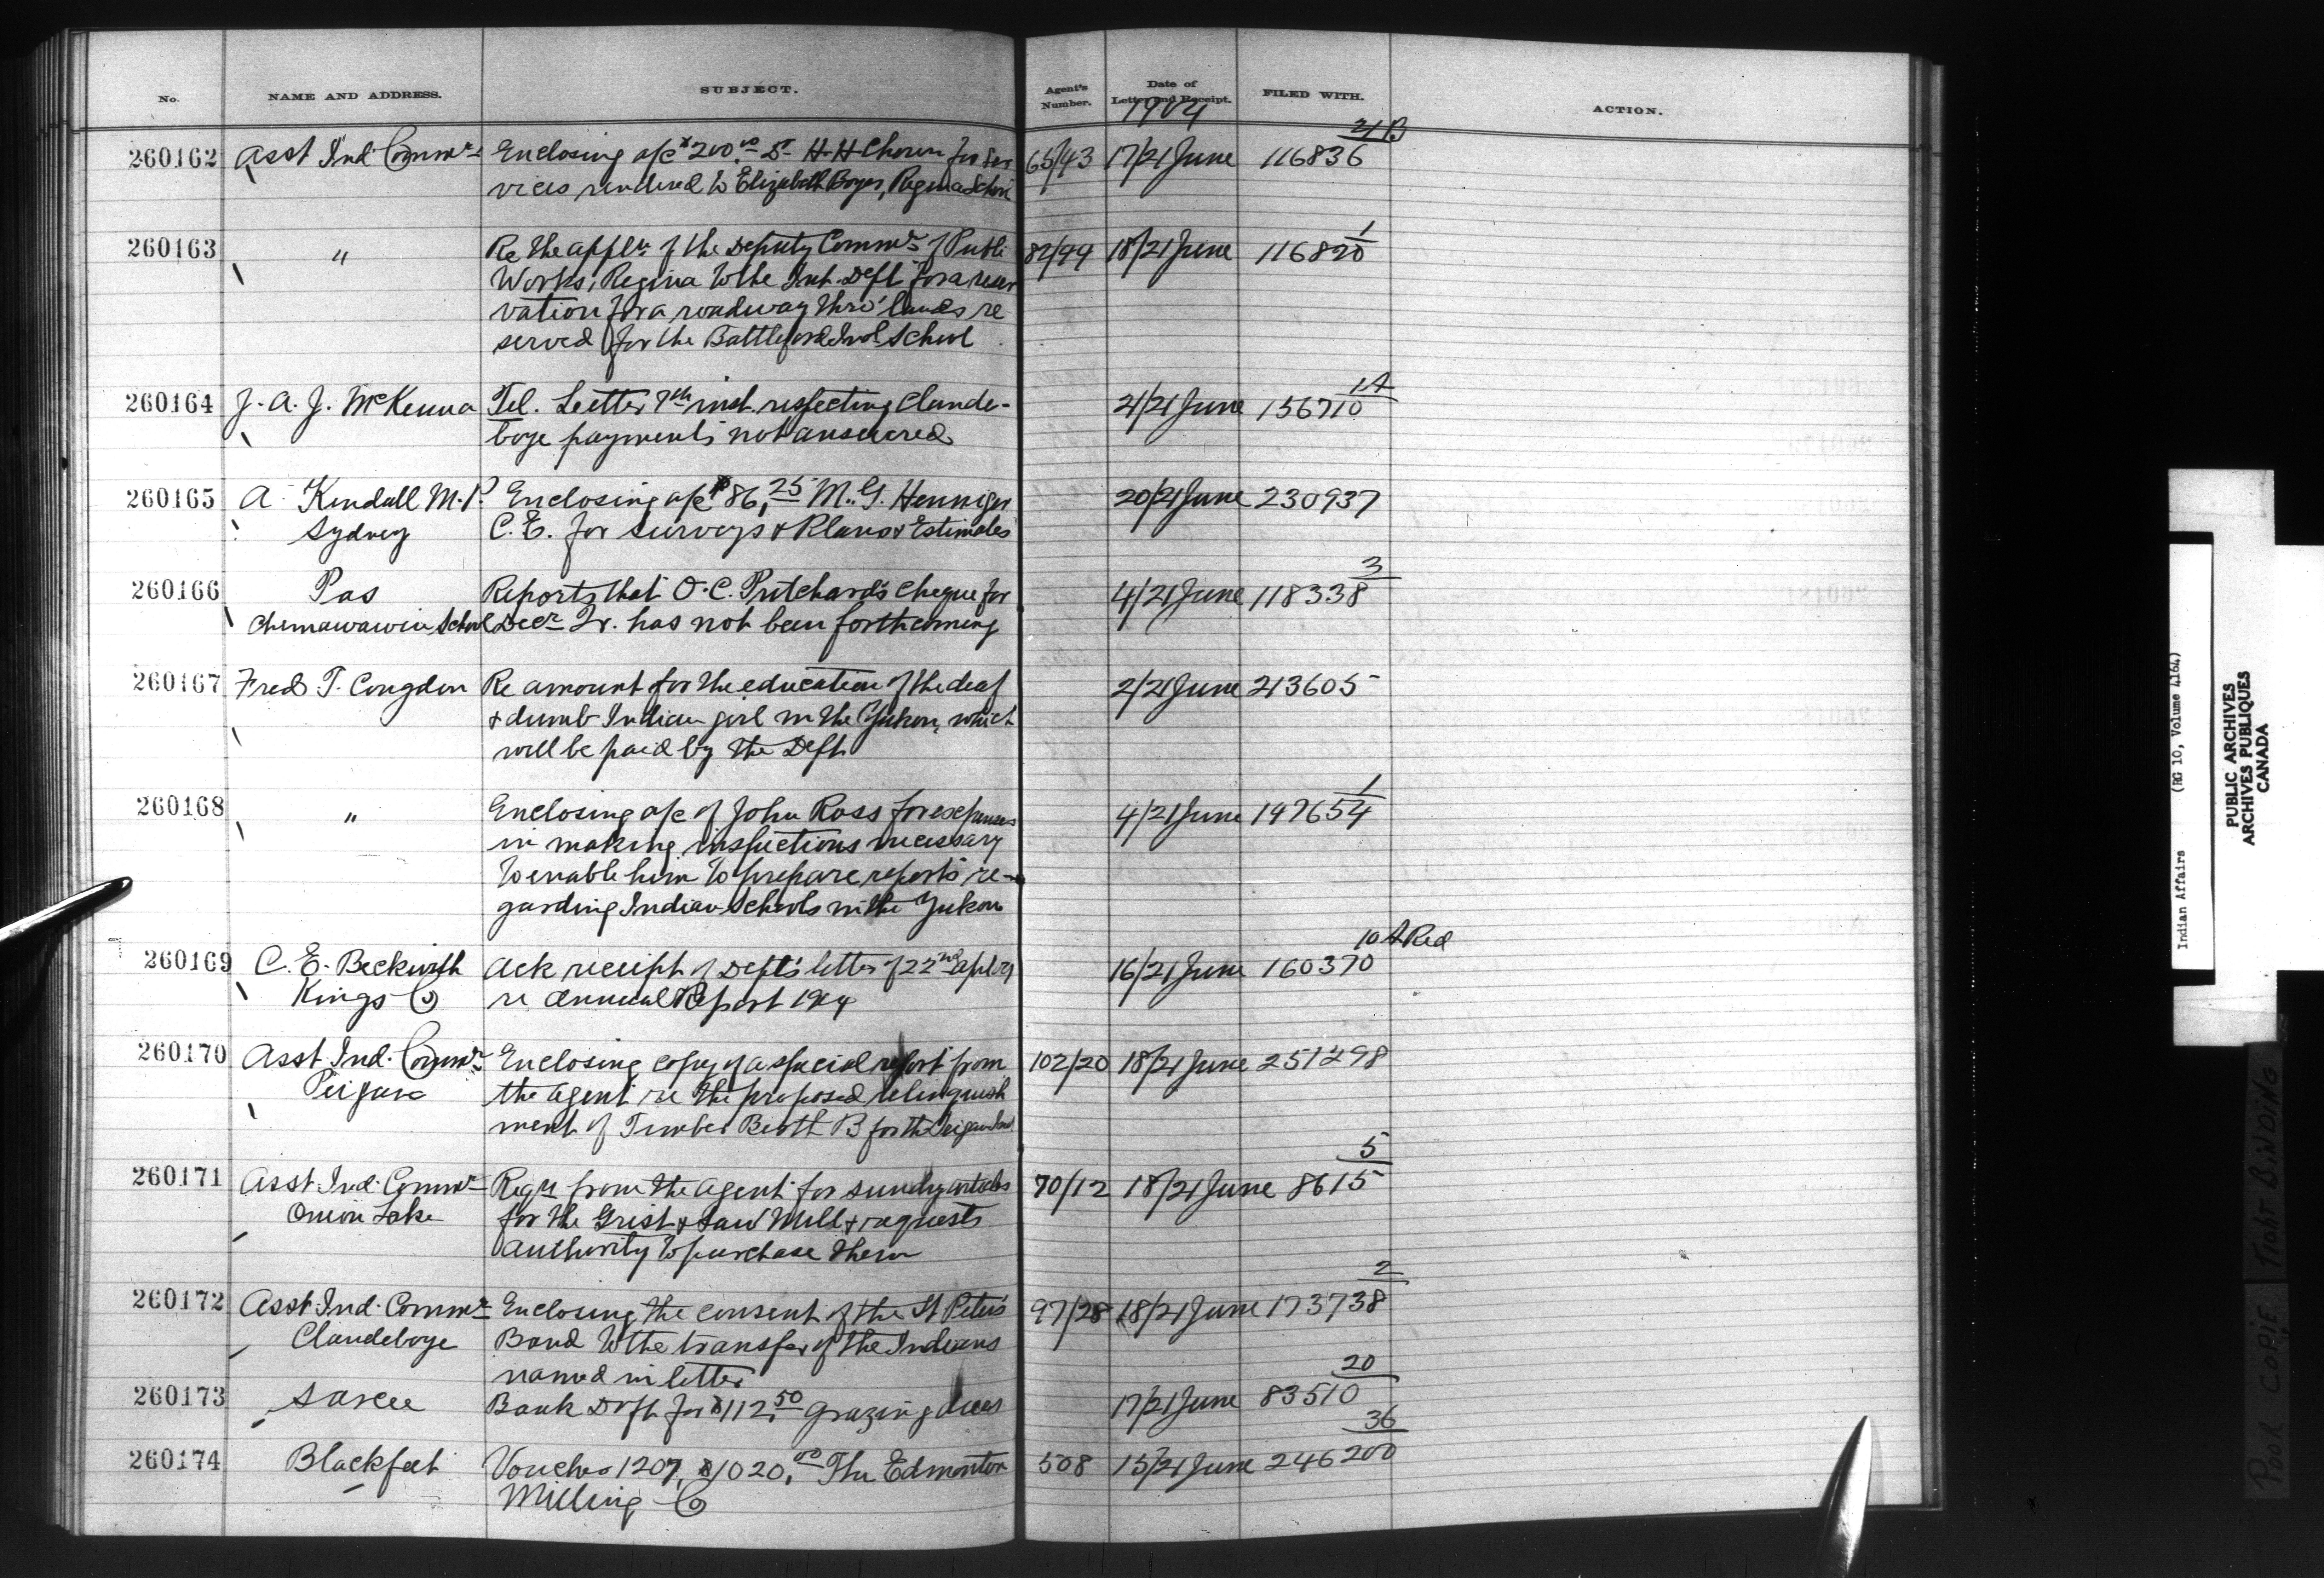 No. NAME AND ADDRESS. SUBJECT. Agent's Number. Date of Letter and Receipt. FILED WITH. ACTION.
1904
21B
260162 Asst Ind Commr Enclosing a/c $200.00 Dr H. H. Chown for Ser 65/43 17/21 June 116836
vices rendered to Elizabeth Boyer, Regina School
1
260163 " Re the appln of the Deputy Commr of Public 82/94 18/21 June 116820
Works, Regina to the Int. Dept for a reser
vation for a roadway thro' lands re
served for the Battleford Ind School
1A
260164 J. A. J. McKenna Tel. Letter 7th inst. respecting Clande-
21/21 June 156710
boye payments not answered
260165 A. Kendall M.P. Enclosing a/c $86.25 M. G. Henniger 20/21 June 230937
Sydney C.E. for surveys & Plans & Estimates
3
260166 Pas Reports that O. C. Pritchard's cheque for 4/21 June 118338
Chemawawin School Decr Qr. has not been forthcoming
260167 Fred T. Congdon Re amount for the education of the deaf 2/21 June 213605
& dumb Indian girl in the Yukon, which
will be paid by the Dept
1
260168 " Enclosing a/c of John Ross for expenses 4/21 June 147654
in making inspections necessary
to enable him to prepare reports re-
garding Indian Schools in the Yukon
10A Red
260169 C. E. Beckwith Ack receipt of Dept's letter of 22nd Apl 16/21 June 160370
Kings Co re Annual Report 1904
260170 Asst Ind. Commr Enclosing copy of a special report from 102/20 18/21 June 251298
Peigan the agent re the proposed relinquish
ment of Timber Berth B for the Peigan Ind.
5
260171 Asst Ind. Commr Reqn from the agent for sundry articles 70/12 18/21 June 8615
Onion Lake for the Grist & Saw Mill & requests
authority to purchase them
2
260172 Asst Ind. Commr Enclosing the consent of the St Peter's 97/28 18/21 June 173738
Clandeboye Band to the transfer of the Indians
named in letter
20
260173 Sarcee Bank Drft for $112.50 Grazing dues 17/21 June 83510
36
260174 Blackfeet Voucher 1207, $1020.00 The Edmonton 508 15/21 June 246200
Milling Co
Indian Affairs (RG 10, Volume 4164)
PUBLIC ARCHIVES
ARCHIVES PUBLIQUES
CANADA
POOR COPIE TIGHT BINDING